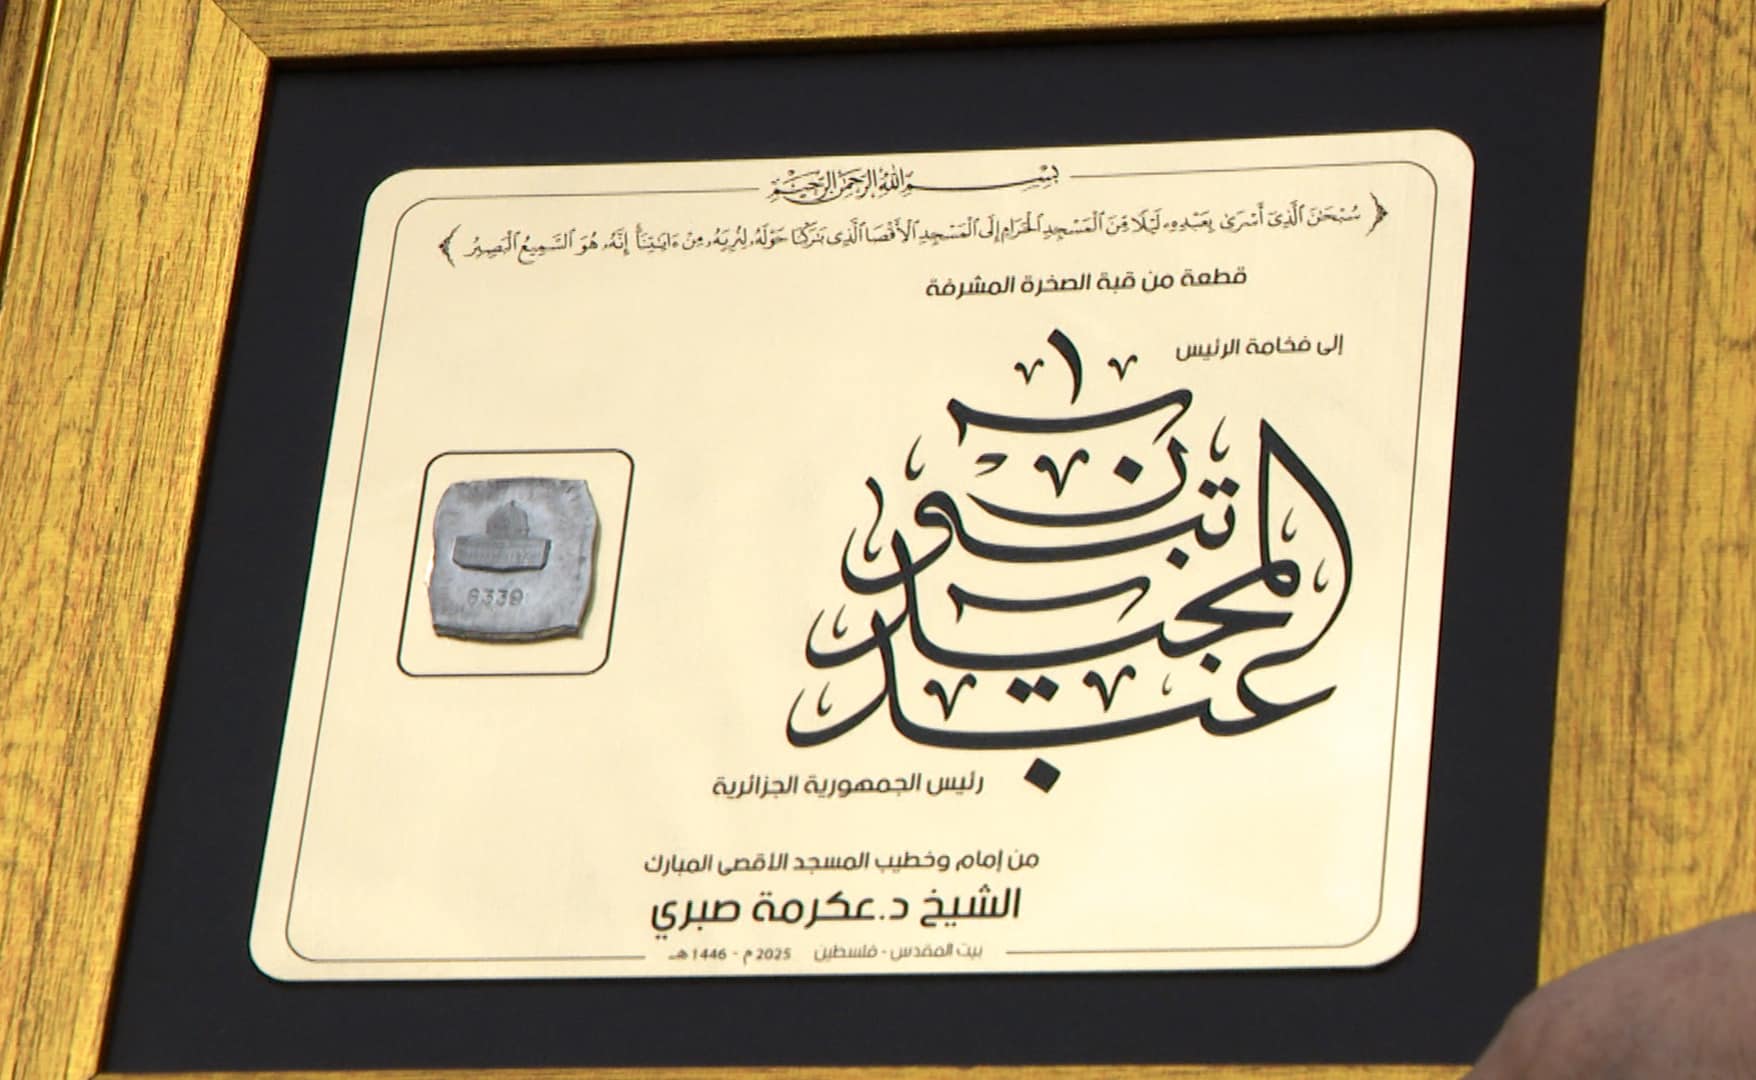 بسم الله الرحمن الرحيم
﴿ سُبْحَٰنَ ٱلَّذِىٓ أَسْرَىٰ بِعَبْدِهِۦ لَيْلًا مِّنَ ٱلْمَسْجِدِ ٱلْحَرَامِ إِلَى ٱلْمَسْجِدِ ٱلْأَقْصَا ٱلَّذِى بَٰرَكْنَا حَوْلَهُۥ لِنُرِيَهُۥ مِنْ ءَايَٰتِنَآ إِنَّهُۥ هُوَ ٱلسَّمِيعُ ٱلْبَصِيرُ ﴾
قطعة من قبة الصخرة المشرفة
إلى فخامة الرئيس
عبد المجيد تبون
6339
رئيس الجمهورية الجزائرية
من إمام وخطيب المسجد الأقصى المبارك
الشيخ د.عكرمة صبري
بيت المقدس - فلسطين 2025 م - 1446 هـ